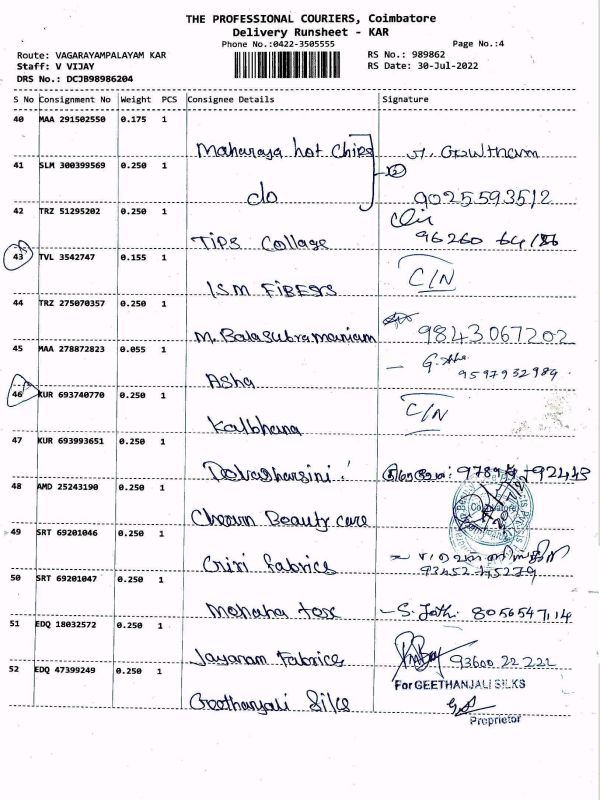 THE PROFESSIONAL COURIERS, Coimbatore
Delivery Runsheet - KAR
Phone No.:0422-3505555 Page No.:4
Route: VAGARAYAMPALAYAM KAR RS No.: 989862
Staff: V VIJAY RS Date: 30-Jul-2022
DRS No.: DCJB98986204
S No Consignment No Weight PCS Consignee Details Signature
40 MAA 291502550 0.175 1
Maharaja hot chips
41 SLM 300399569 0.250 1
do 9025593512
42 TRZ 51295202 0.250 1
Tips Collage 96260
43 TVL 3542747 0.155 1
ISM FIBERS C/N
44 TRZ 275070357 0.250 1
M. Balasubramaniam 9843067202
45 MAA 278872823 0.055 1
Asha 9597932989
46 KUR 693740770 0.250 1
Kalbhana C/N
47 KUR 693993651 0.250 1
48 AMD 25243190 0.250 1
Beauty care
49 SRT 69201046 0.250 1
Fabrics
50 SRT 69201047 0.250 1
8056547114
51 EDQ 18032572 0.250 1
Jayaram Fabrics 93600 22 222
52 EDQ 47399249 0.250 1
For GEETHANJALI SILKS
Geethanjali Silks
Proprietor